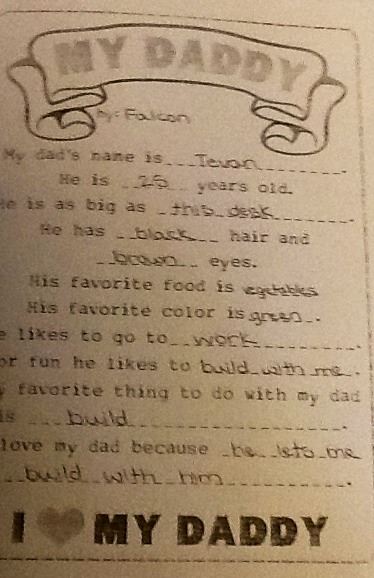 MY DADDY
by: Falcon
My dad's name is Tevon.
He is 25 years old.
He is as big as this desk.
He has black hair and
brown eyes.
His favorite food is vegetables
His favorite color is green.
e likes to go to work.
or fun he likes to build with me.
y favorite thing to do with my dad
is build.
love my dad because he lets me
build with him.
I ♥ MY DADDY